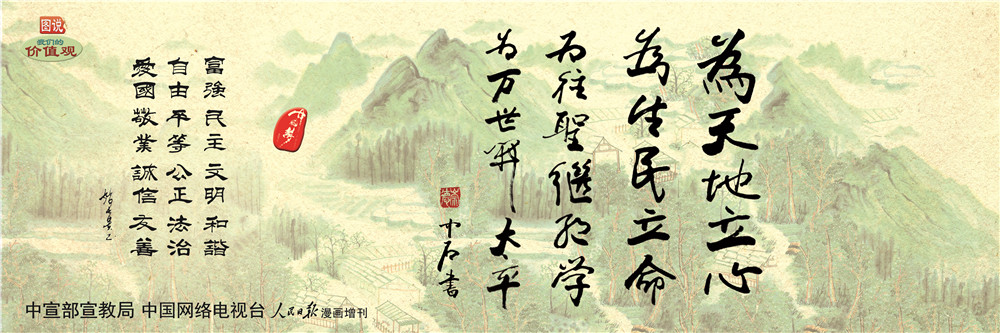 為天地立心
為生民立命
为往聖繼绝学
为万世開太平
中石書
中国梦
富強民主文明和諧
自由平等公正法治
愛國敬業誠信友善
图说
我们的
价值观
中宣部宣教局 中国网络电视台 人民日报 漫画增刊